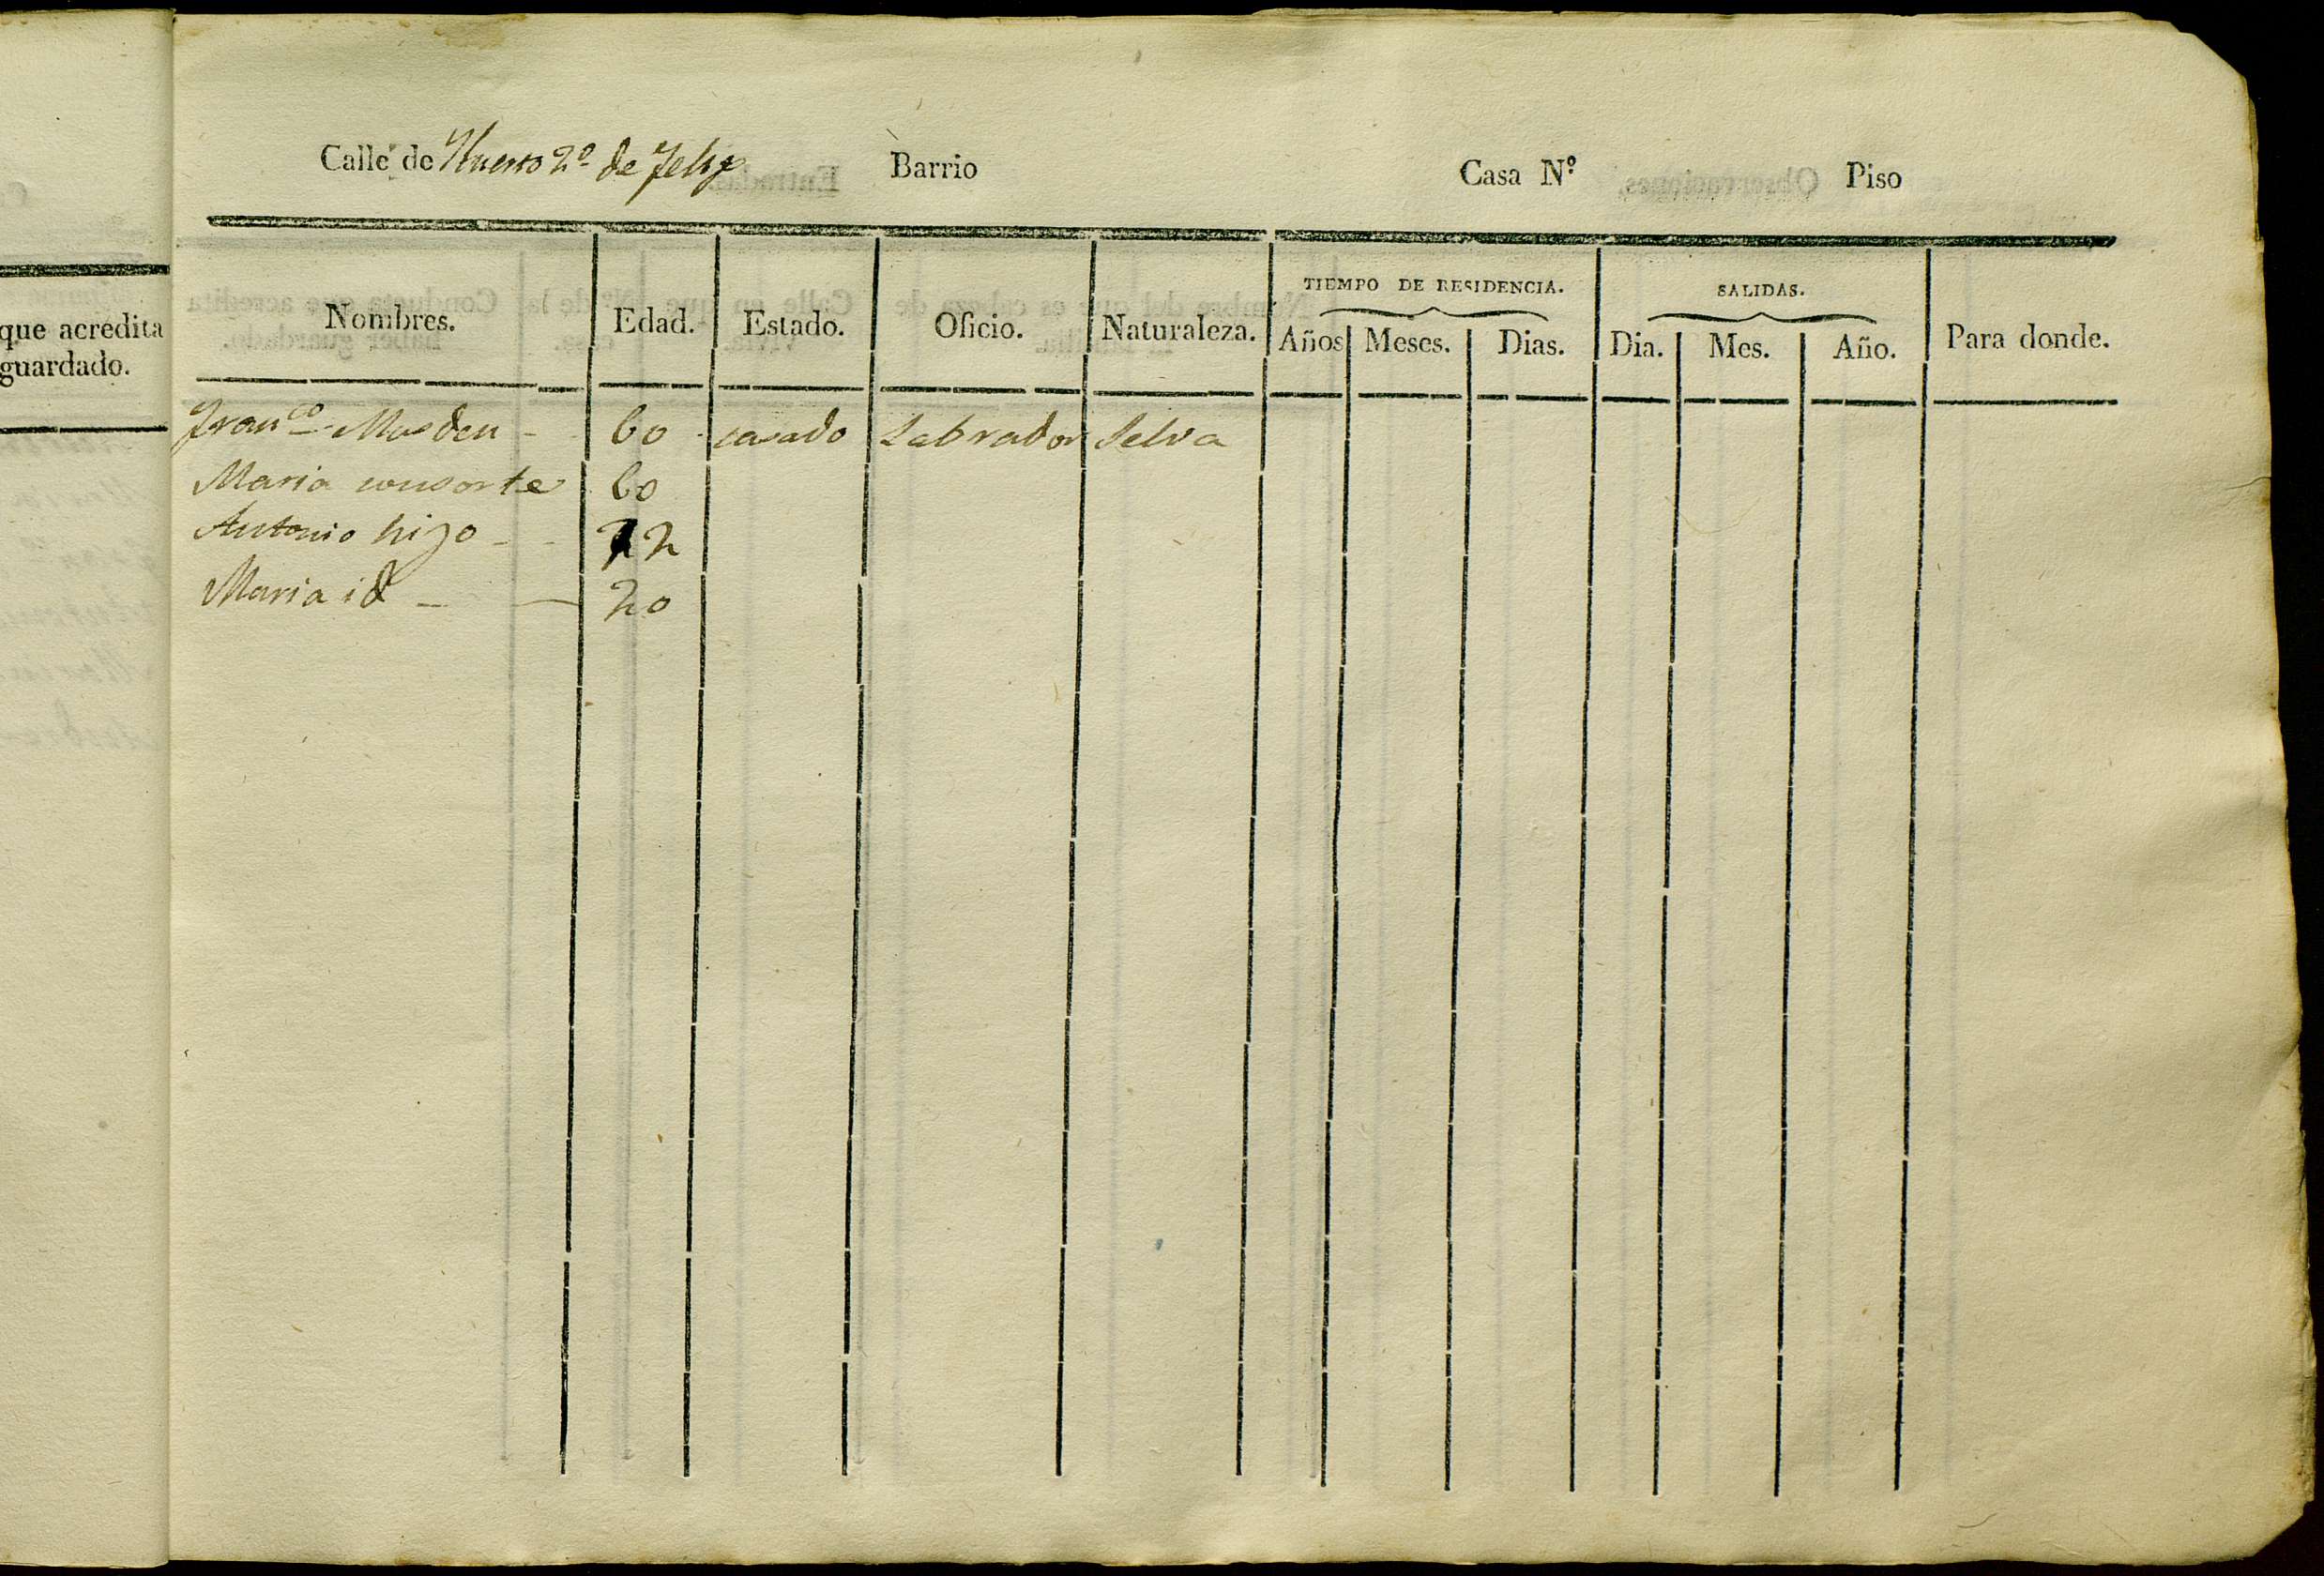 que acredita
guardado.
Calle de Huerto 2º de Felip Barrio Casa N.º Piso
Nombres. Edad. Estado. Oficio. Naturaleza. TIEMPO DE RESIDENCIA. SALIDAS. Para donde.
Años Meses. Dias. Dia. Mes. Año.
Franco Masdeu - 60 casado Labrador Selva
Maria consorte 60
Antonio hijo - - 22
Maria id - - 20